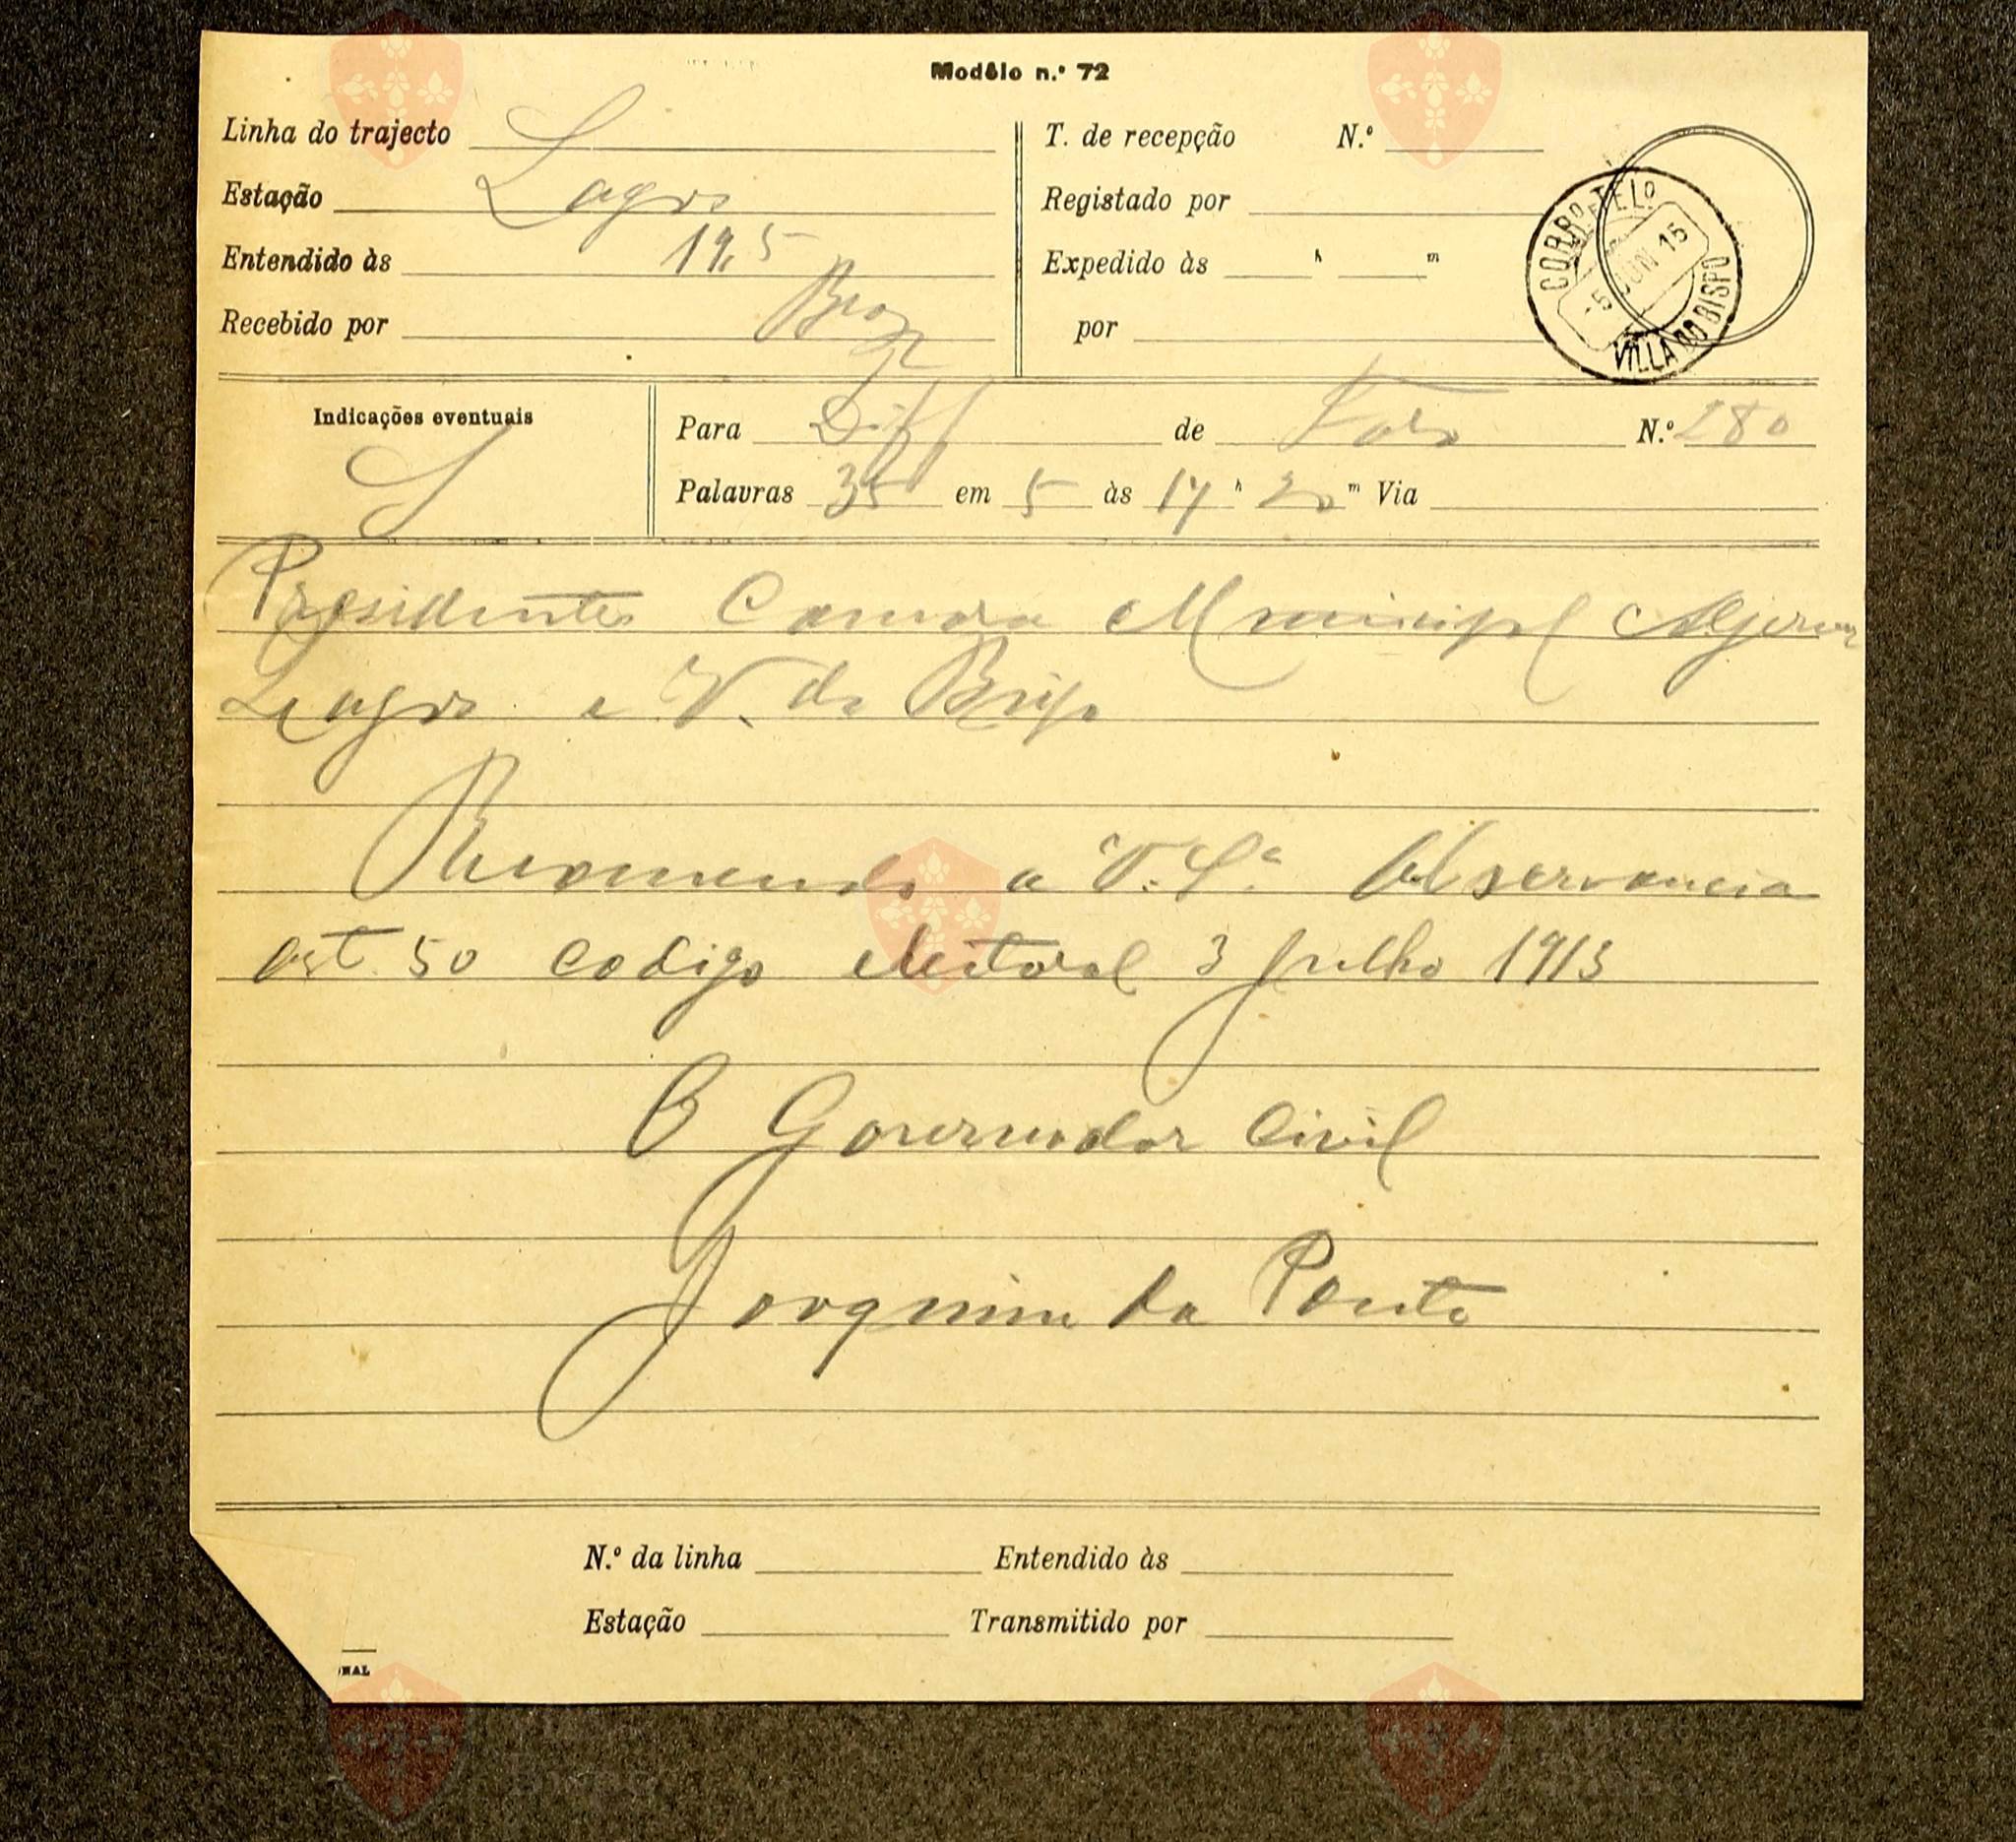 Modêlo n.º 72
Linha do trajecto
Estação Lagos
Entendido às 19,5
Recebido por Braz
T. de recepção N.º
Registado por
Expedido às h m
por
CORRO E TELO
-5 JUN 15
VILLA DO BISPO
Indicações eventuais
S
Para Diff de Faro N.º 280
Palavras 35 em 5 às 17 h 20 m Via
Presidentes Camara Municipal Aljezur
Lagos e V. do Bispo
Recomendo a V. S.ª Observancia
art 50 codigo eleitoral 3 Julho 1913
O Governador Civil
Joaquim da Ponte
N.º da linha Entendido às
Estação Transmitido por
NAL